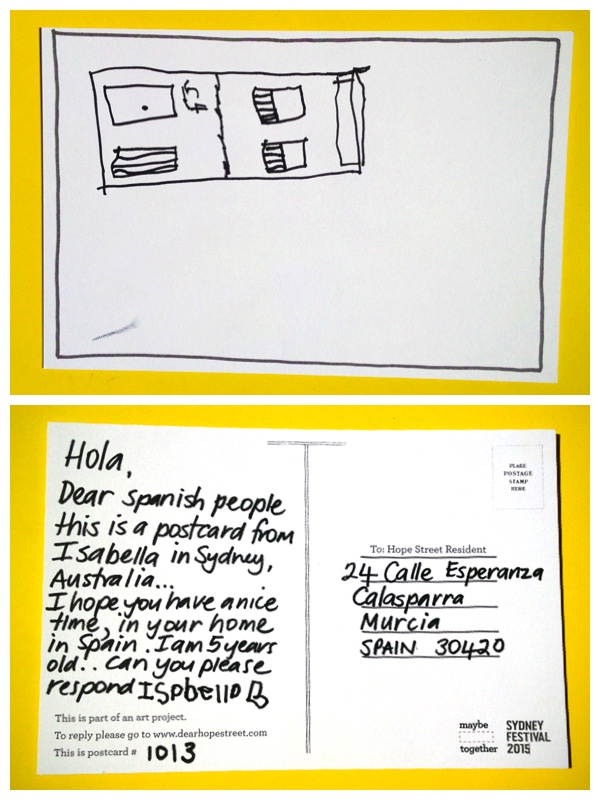 Hola,
Dear spanish people
this is a postcard from
Isabella in Sydney,
Australia...
I hope you have a nice
time, in your home
in Spain. I am 5 years
old.. can you please
respond ISabello B
This is part of an art project.
To reply please go to www.dearhopestreet.com
This is postcard # 1013
PLACE
POSTAGE
STAMP
HERE
To: Hope Street Resident
24 Calle Esperanza
Calasparra
Murcia
SPAIN 30420
maybe
together
SYDNEY
FESTIVAL
2015